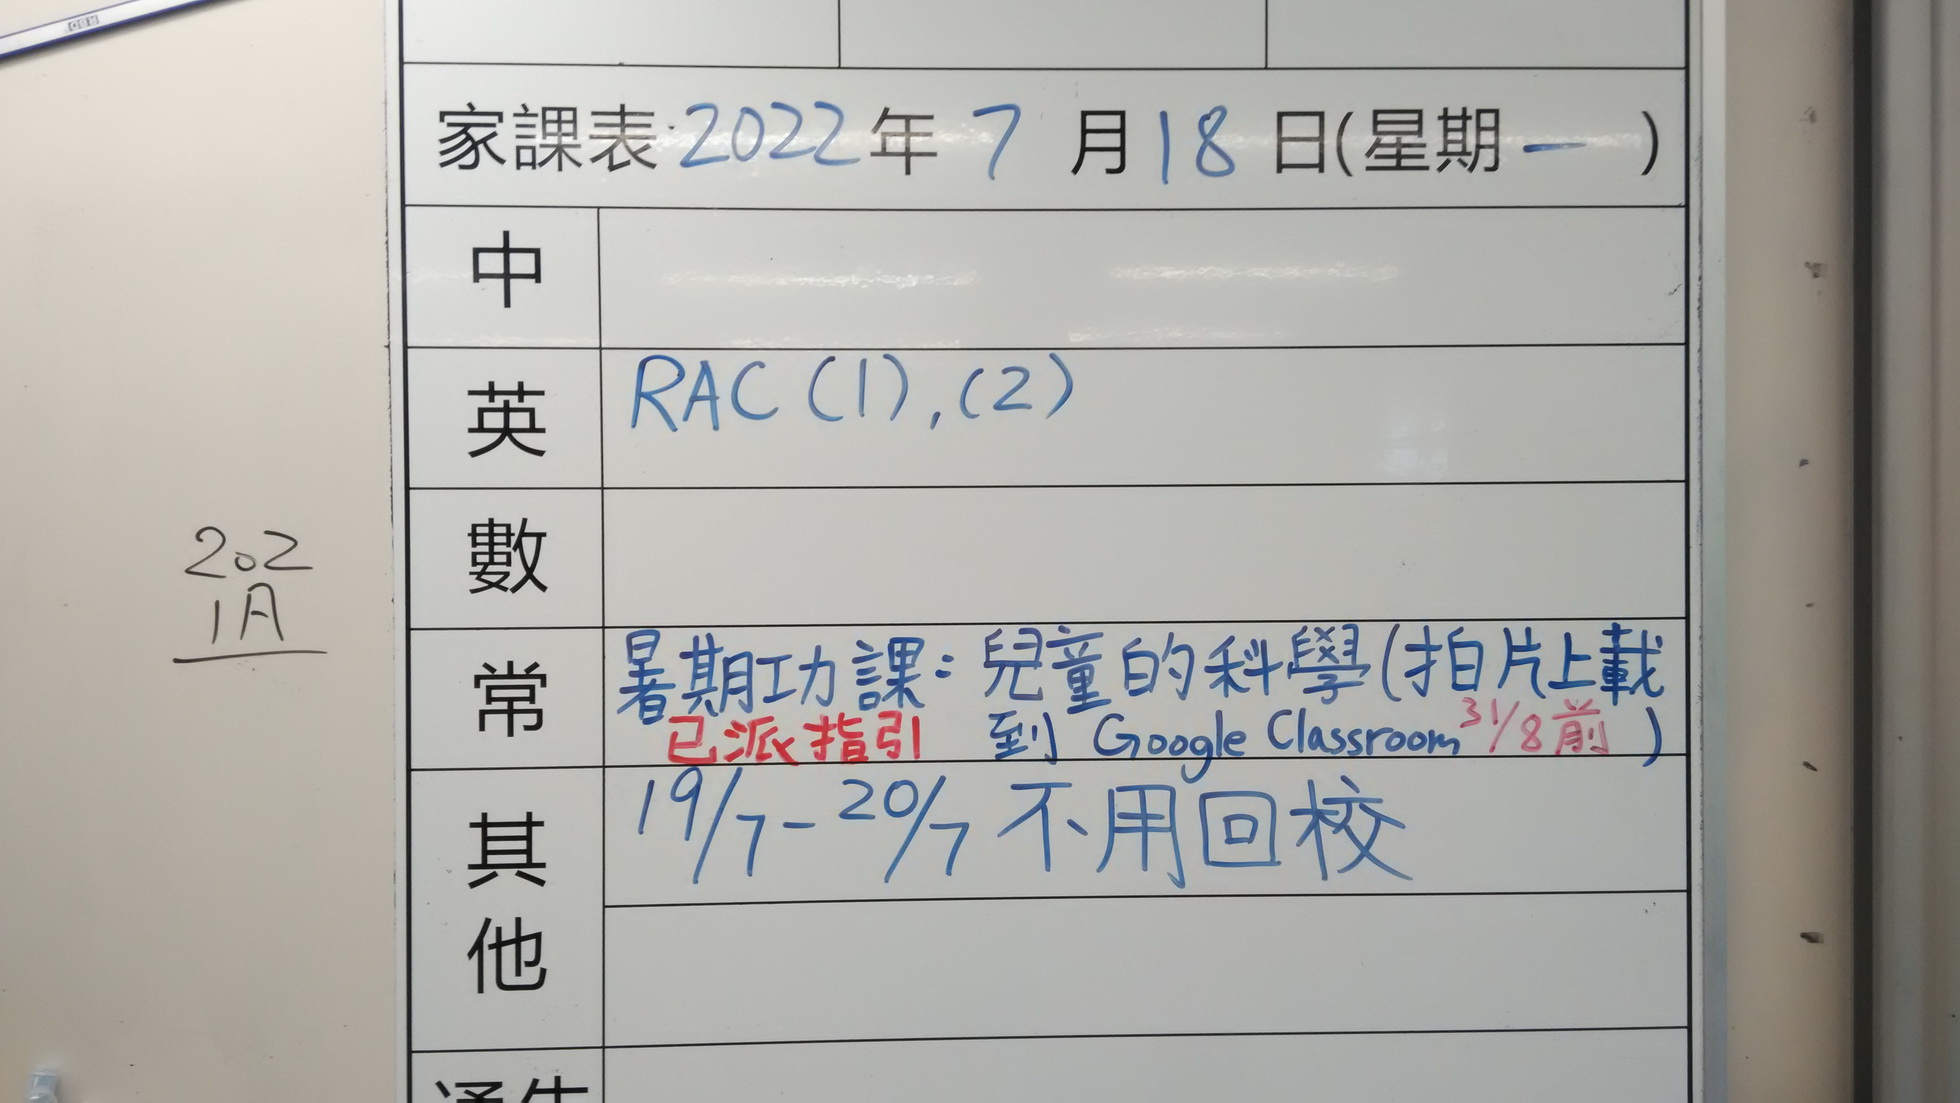 家課表 2022年 7 月 18 日(星期一 )
中
英 RAC (1), (2)
數
202
1A
常 暑期功課：兒童的科學(拍片上載
已派指引 到 Google Classroom 31/8前 )
其他 19/7 - 20/7 不用回校